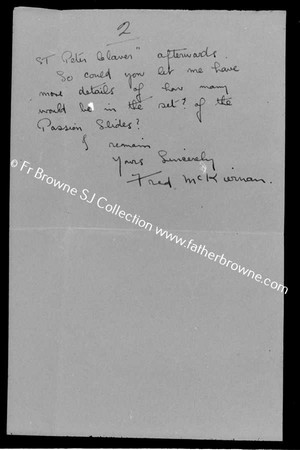 2
St Peter Claver" afterwards.
So could you let me have
more details of how many
would be in the set? of the
Passion Slides?
I remain
Yours Sincerely
Fred McKiernan.
© Fr Browne SJ Collection - www.fatherbrowne.com